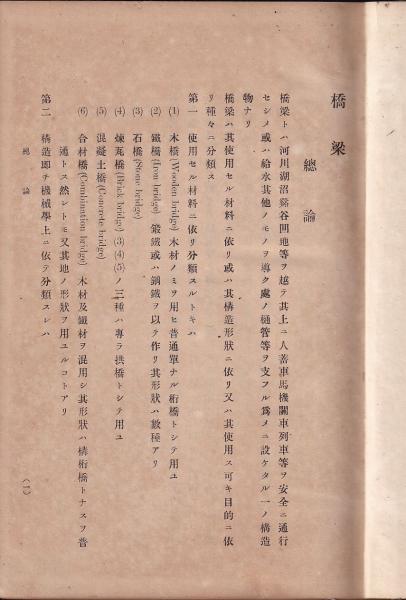 橋梁
總論
橋梁トハ河川湖沼谿谷凹地等ヲ越テ其上ニ人畜車馬機關車列車等ヲ安全ニ通行
セシメ或ハ給水其他ノモノヲ導ク處ノ樋管等ヲ支フル爲メニ設ケタル一ノ構造
物ナリ
橋梁ハ其使用セル材料ニ依リ或ハ其構造形狀ニ依リ又ハ其使用ス可キ目的ニ依
リ種々ニ分類ス
第一 使用セル材料ニ依リ分類スルトキハ
(1) 木橋(Wooden bridge) 木材ノミヲ用ヒ普通單ナル桁橋トシテ用ユ
(2) 鐵橋(Iron bridge) 鍛鐵或ハ鋼鐵ヲ以テ作リ其形狀ハ數種アリ
(3) 石橋(Stone bridge)
(4) 煉瓦橋(Brick bridge) (3)(4)(5)ノ三種ハ專ラ拱橋トシテ用ユ
(5) 混凝土橋(Concrete bridge)
(6) 合材橋(Combination bridge) 木材及鐵材ヲ混用シ其形狀ハ構桁橋トナスヲ普
通トス然シトモ又其他ノ形狀ヲ用ユルコトアリ
第二 構造即チ機械學上ニ依テ分類スレハ
總論
(一)